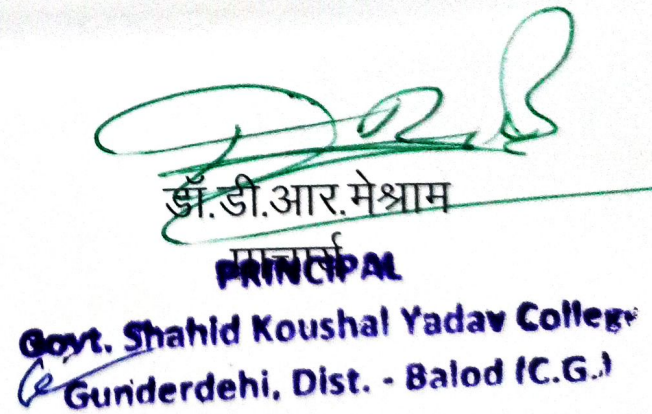 डॉ.डी.आर.मेश्राम
प्राचार्य
PRINCIPAL
Govt. Shahid Koushal Yadav College
Gunderdehi, Dist. - Balod (C.G.)